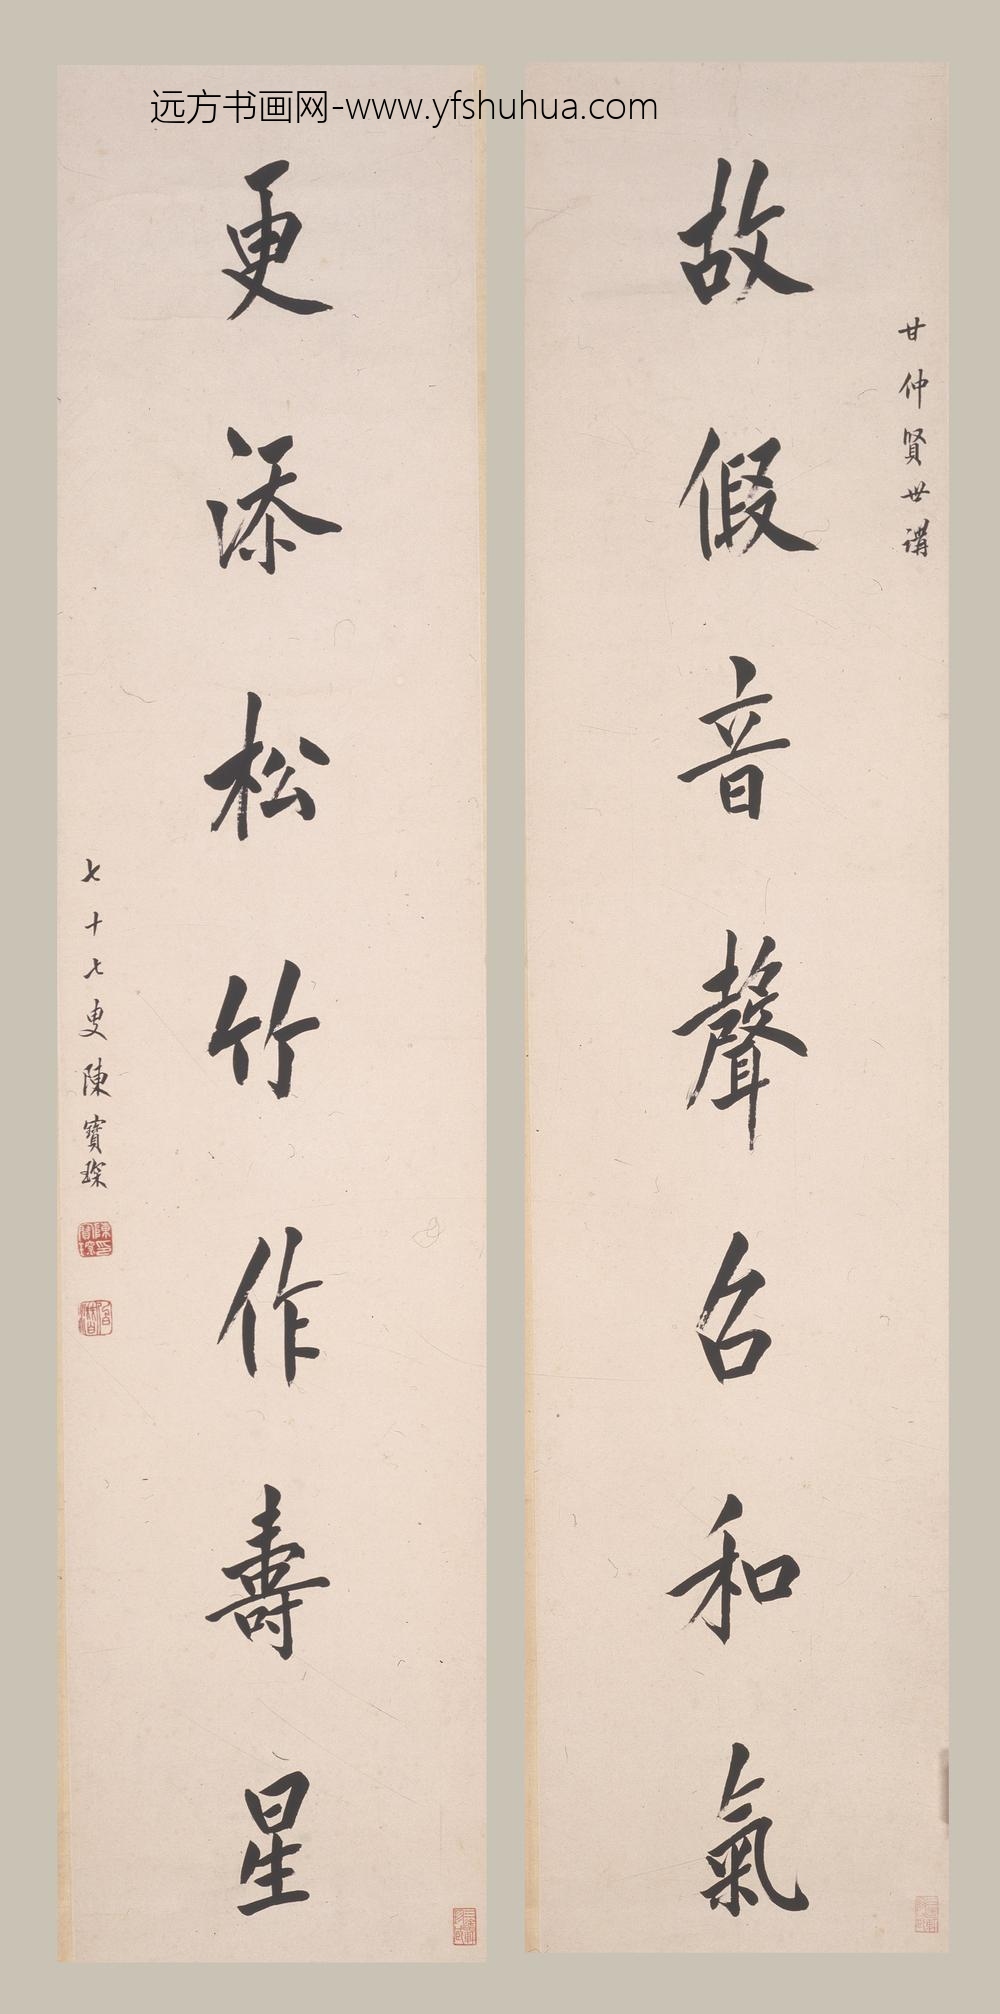 远方书画网-www.yfshuhua.com
甘仲賢世講
故假音聲召和氣
更添松竹作壽星
七十七叟陳寶琛